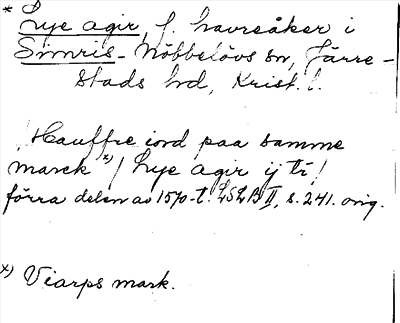 * Lye agir, f. havreåker i
Simris-Nöbbelövs sn, Järre-
stads hd, Krist. l.
"Hauffre iord paa samme
marck x)/ Lye agir ij tr!
förra delen av 1570-t. LSLB II, s. 241. orig.
x) Viarps mark.